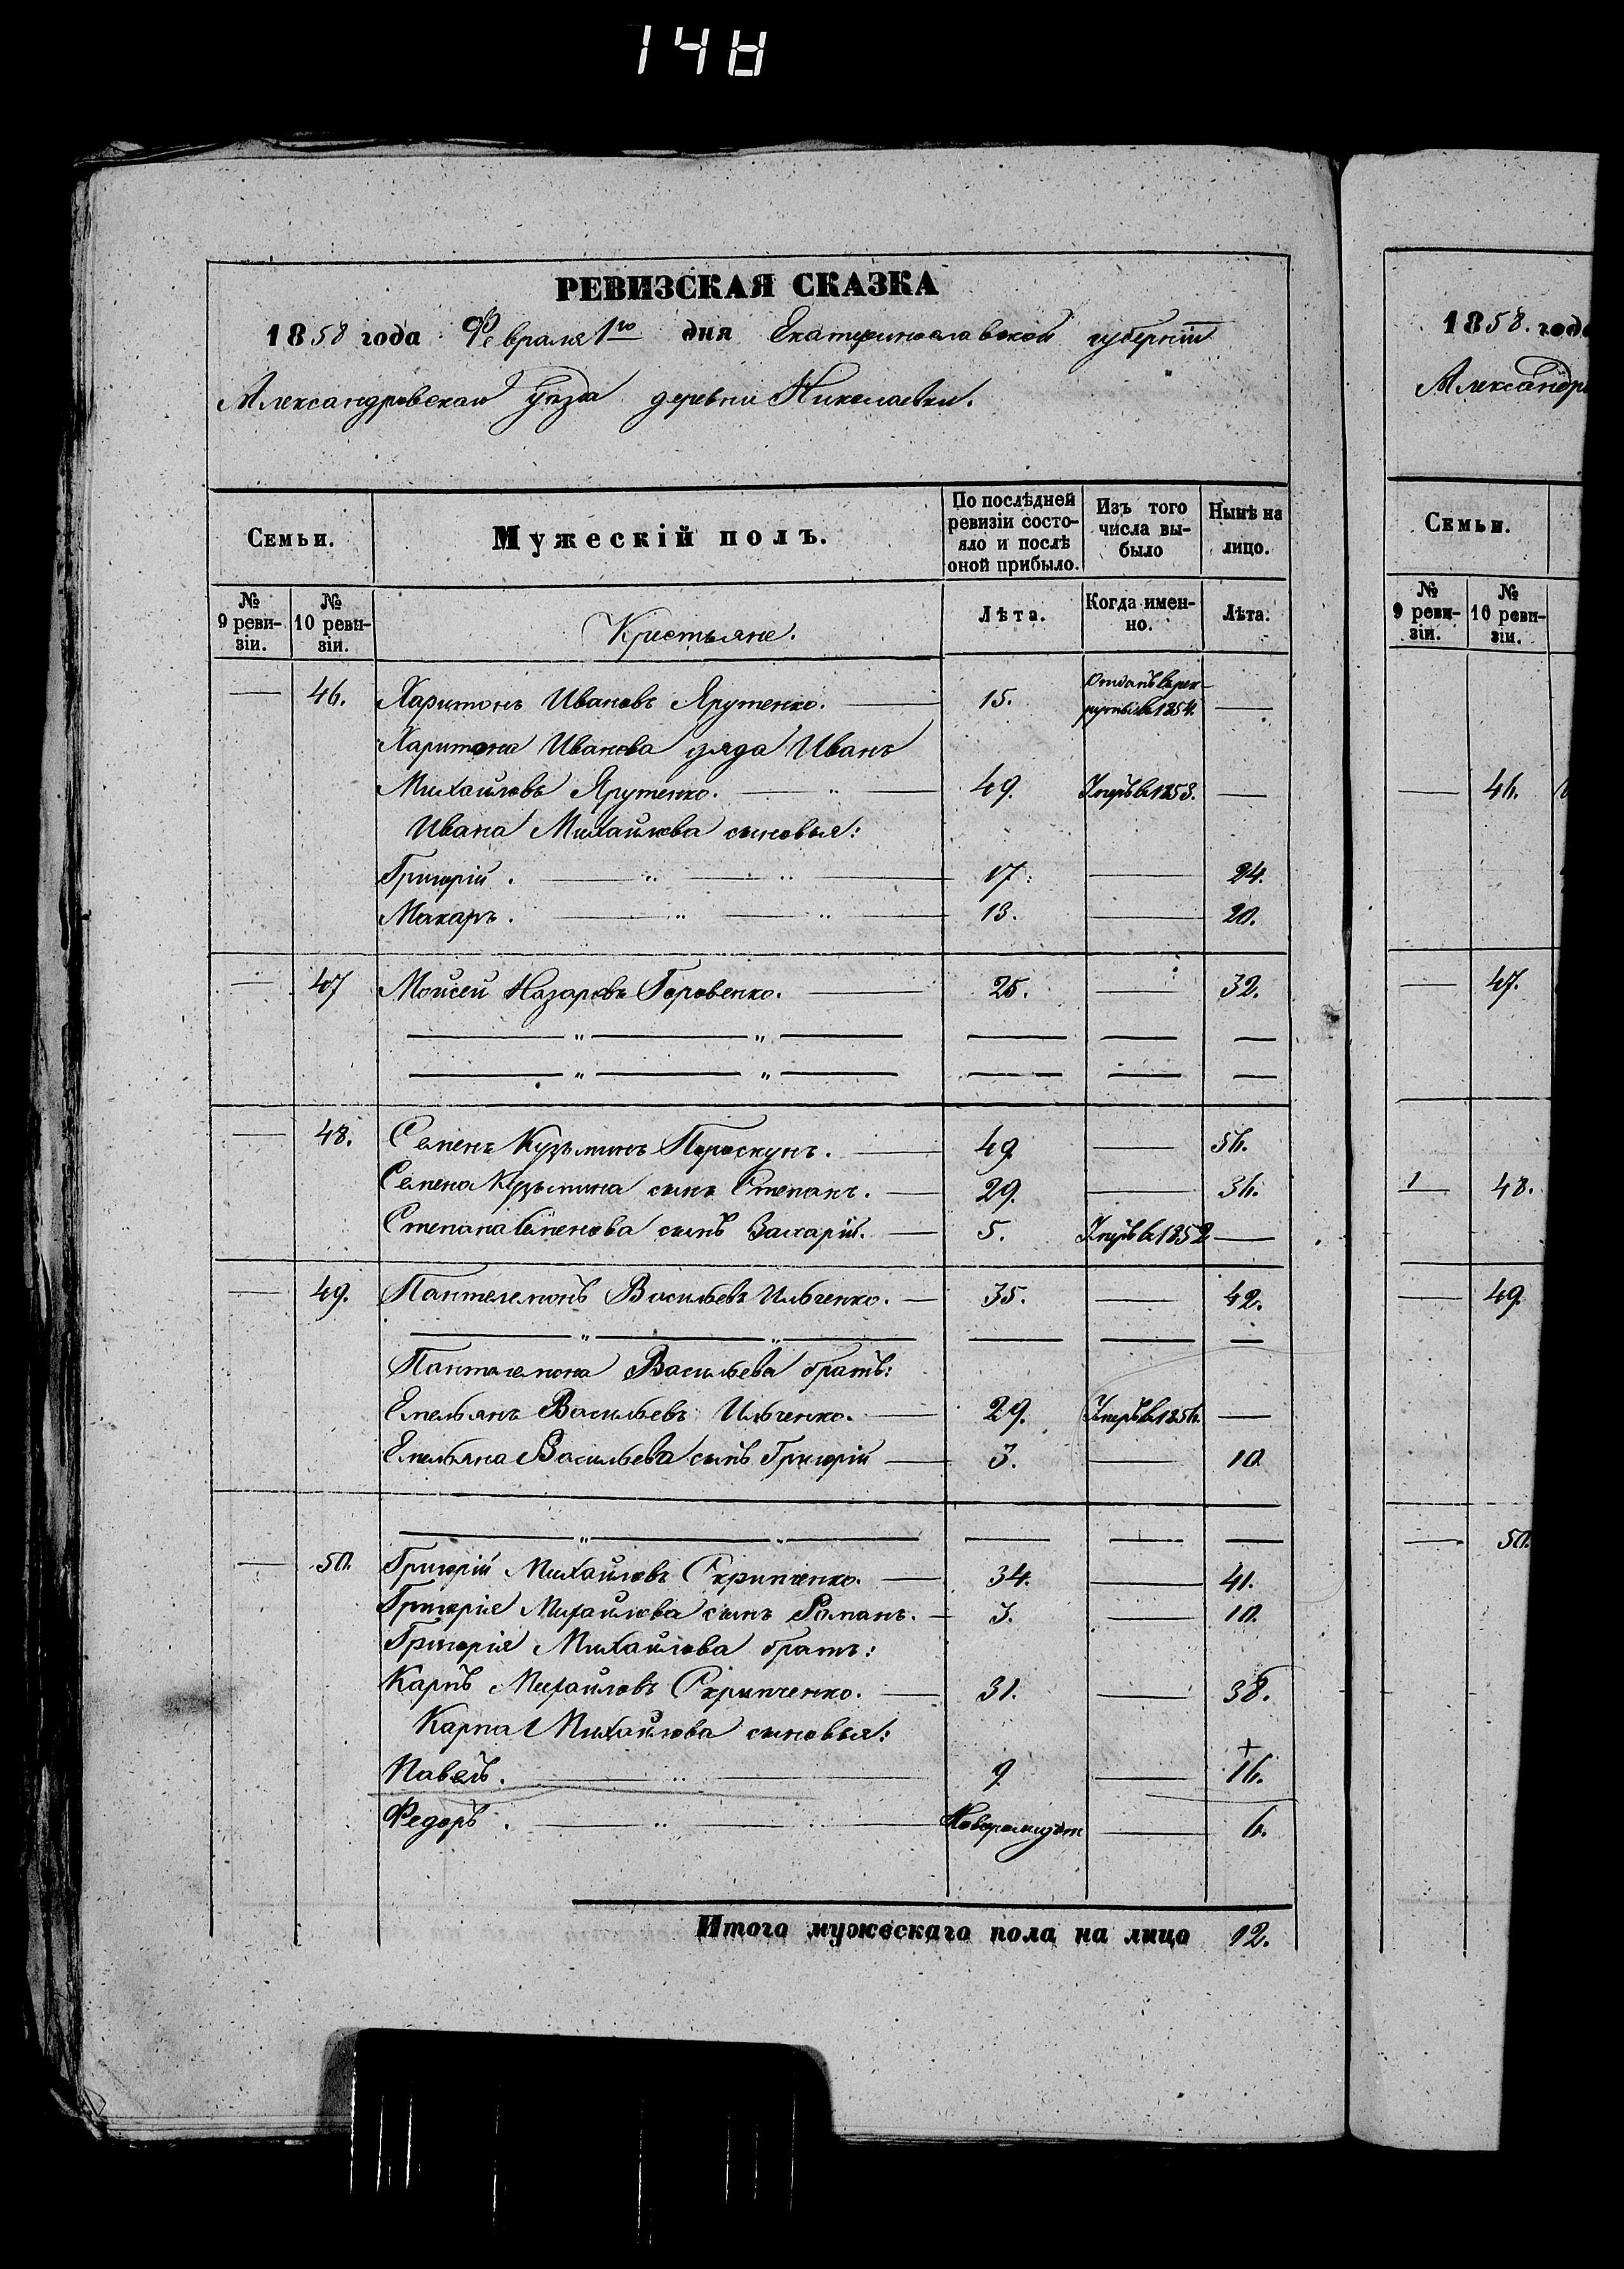 148
РЕВИЗСКАЯ СКАЗКА
1858 года Февраля 1го дня Екатеринославской губернiи
Александровскаго Уѣзда деревни Николаевки.
Семьи.
Мужескiй полъ.
По послѣдней ревизiи состо-яло и послѣ оной прибыло.
Изъ того числа вы-было
Нынѣ на лицо.
№ 9 реви-зiи.
№ 10 реви-зiи.
Крестьяне.
Лѣта.
Когда имен-но.
Лѣта.
46. Харитонъ Ивановъ Ярутенко. 15. Отданъ въ рек-руты въ 1854.
Харитона Иванова дядя Иванъ
Михайловъ Ярутенко. 49. Умеръ въ 1853.
Ивана Михайлова сыновья:
Григорiй. 17. 24.
Макаръ. 13. 20.
47 Мойсей Назаровъ Горовенко. 25. 32.
48. Семенъ Кузьминъ Пороскунъ. 49 56.
Семена Кузьмина сынъ Степанъ. 29. 36.
Степана Семенова сынъ Захарiй. 5. Умеръ въ 1852
49. Пантелемонъ Васильевъ Ильченко. 35. 42.
Пантелемона Васильева братъ:
Емельянъ Васильевъ Ильченко. 29. Умеръ въ 1856.
Емельяна Васильева сынъ Григорiй 3. 10
50. Григорiй Михайловъ Скрипченко. 34. 41.
Григорiя Михайлова сынъ Романъ. 3. 10.
Григорiя Михайлова братъ:
Карпъ Михайловъ Скрипченко. 31. 38.
Карпа Михайлова сыновья:
Павелъ. 9 16.
Федоръ. 6.
Итого мужескаго пола на лицо 12.
1858. года
Александр
Семьи.
№ 9 реви-зiи.
№ 10 реви-зiи.
46.
47.
1 48.
49.
50.